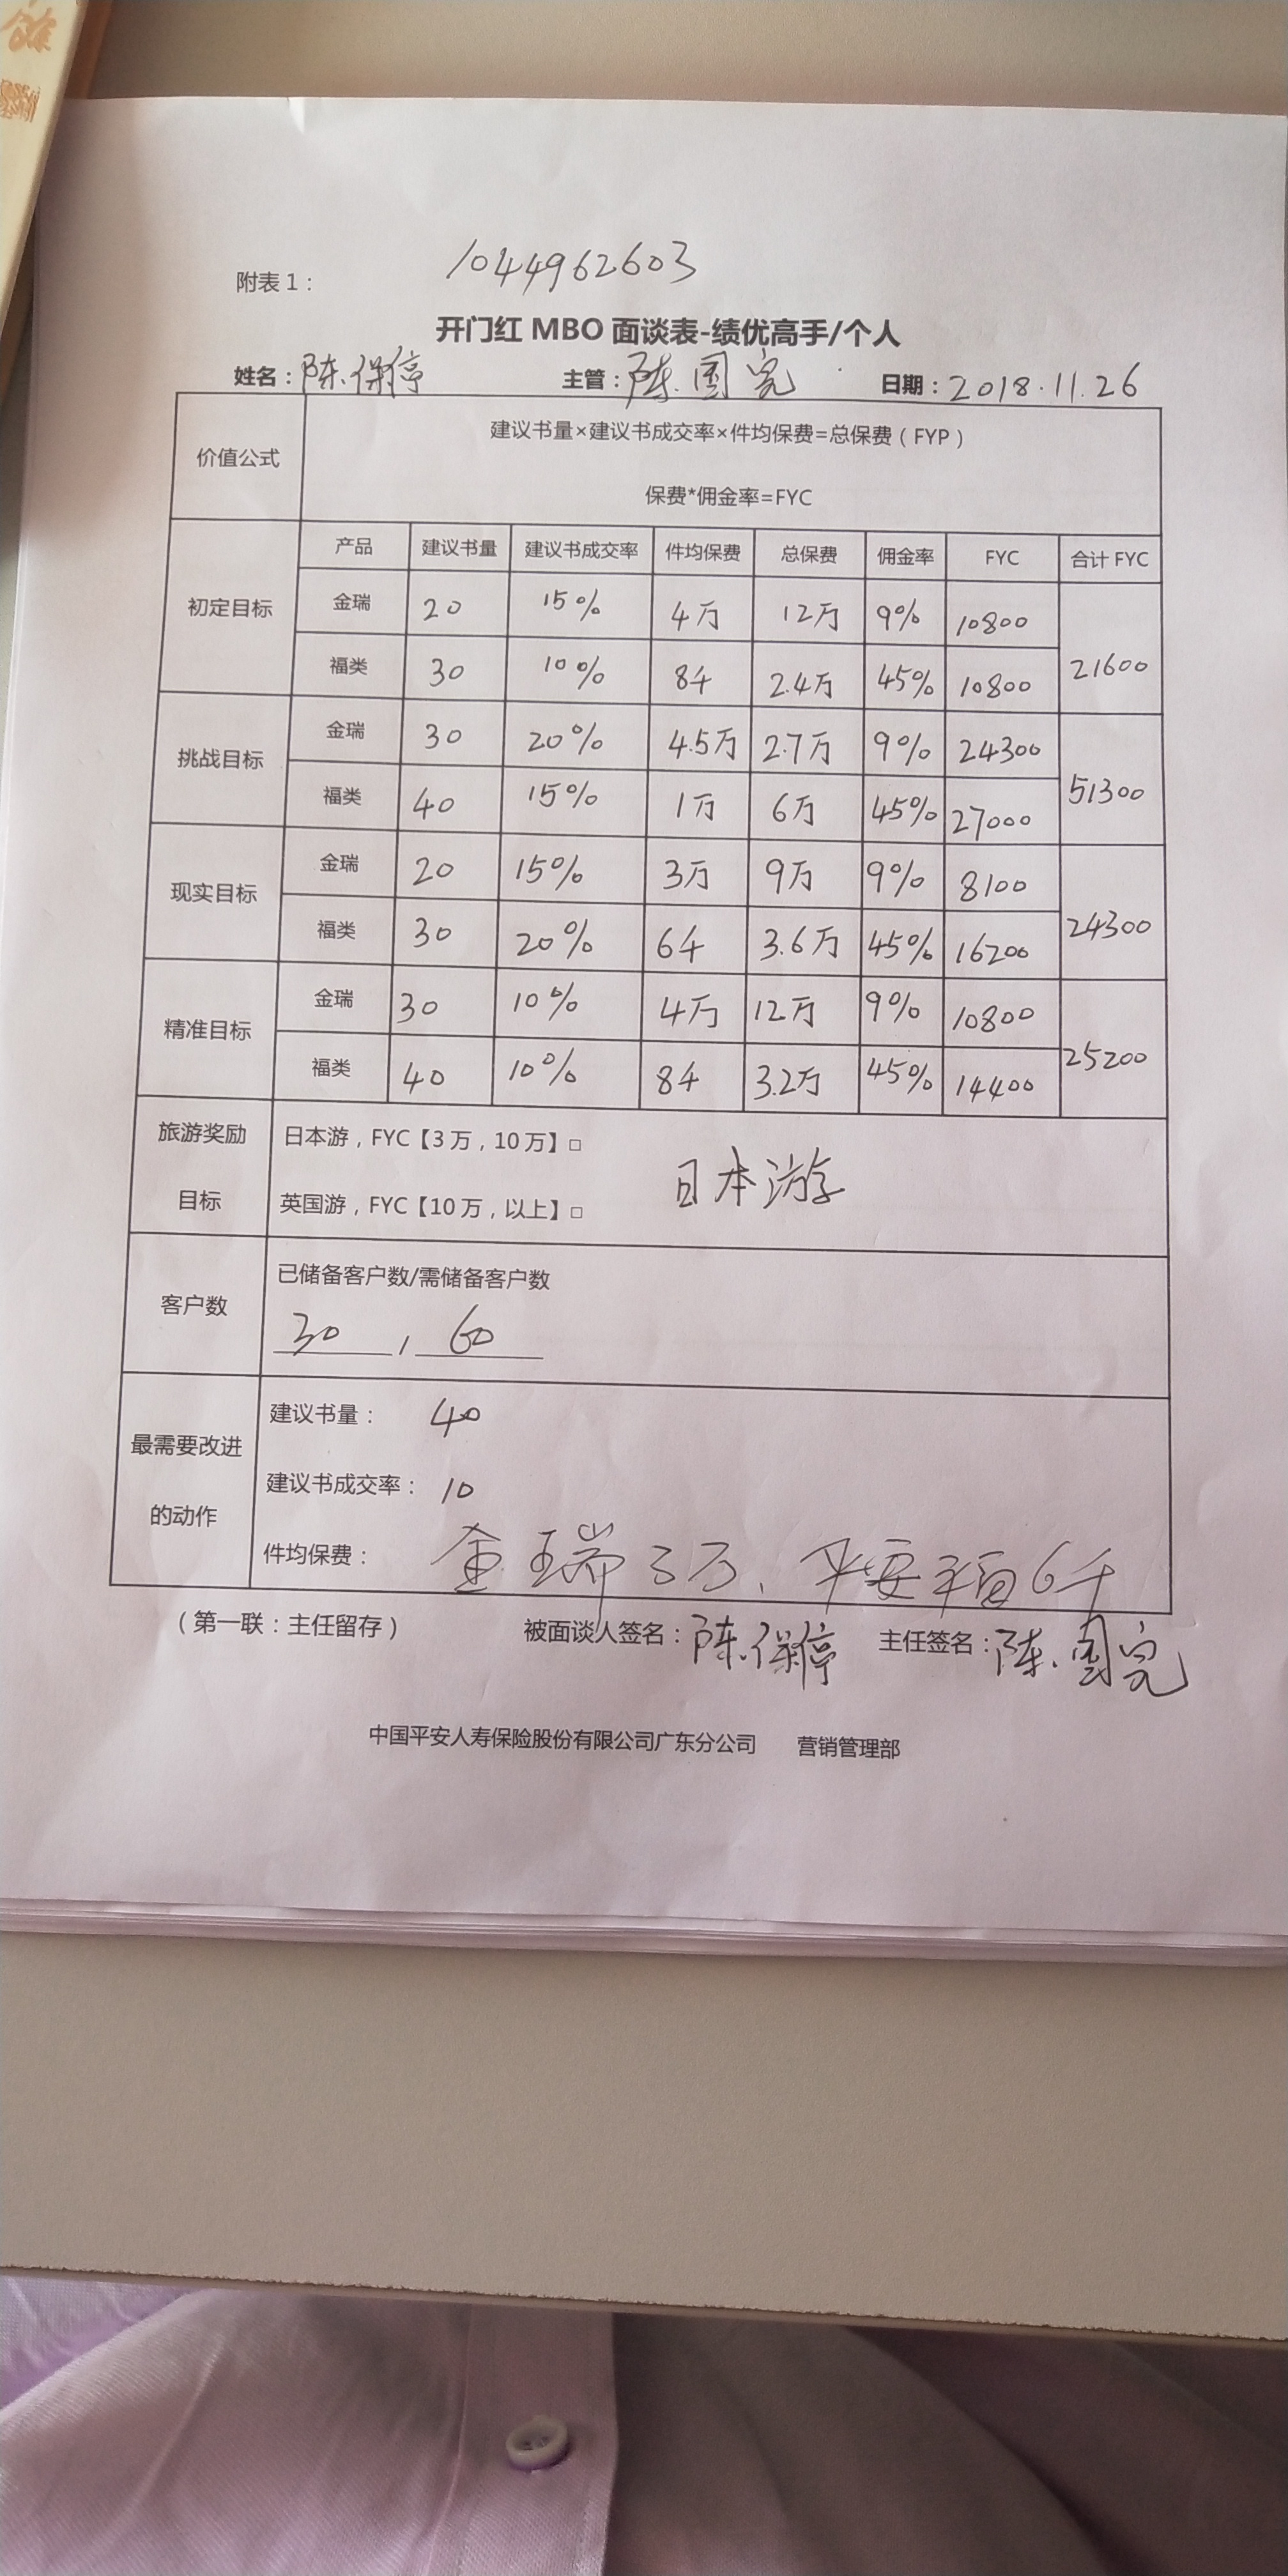 1044962603
附表1：
开门红 MBO 面谈表-绩优高手/个人
姓名：陈保停 主管：陈国宪 日期：2018.11.26
价值公式 建议书量×建议书成交率×件均保费=总保费（FYP）
保费*佣金率=FYC
产品 建议书量 建议书成交率 件均保费 总保费 佣金率 FYC 合计 FYC
初定目标 金瑞 20 15% 4万 12万 9% 10800 21600
福类 30 10% 8千 2.4万 45% 10800
挑战目标 金瑞 30 20% 4.5万 2.7万 9% 24300 51300
福类 40 15% 1万 6万 45% 27000
现实目标 金瑞 20 15% 3万 9万 9% 8100 24300
福类 30 20% 6千 3.6万 45% 16200
精准目标 金瑞 30 10% 4万 12万 9% 10800 25200
福类 40 10% 8千 3.2万 45% 14400
旅游奖励目标 日本游，FYC【3万，10万】□ 日本游
英国游，FYC【10万，以上】□
客户数 已储备客户数/需储备客户数
30 / 60
最需要改进的动作 建议书量： 40
建议书成交率： 10
件均保费： 金瑞3万、平安福6千
（第一联：主任留存） 被面谈人签名：陈保停 主任签名：陈国宪
中国平安人寿保险股份有限公司广东分公司 营销管理部